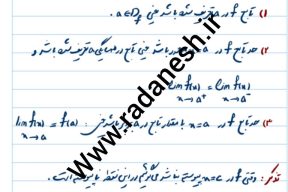 (۱) تابع f در a تعریف شده باشد یعنی a∈D_f.
(۲) حد تابع f در x=a موجود باشد یعنی تابع در همسایگی a تعریف شده باشد و
lim f(x) = lim f(x)
x→a⁺ x→a⁻
(۳) حد تابع f در x=a با مقدار تابع در برابر باشد یعنی: lim f(x) = f(a)
x→a
تذکر: وقتی f در x=c پیوسته نباشد می‌گوییم در این نقطه ناپیوسته است.
www.radanesh.ir